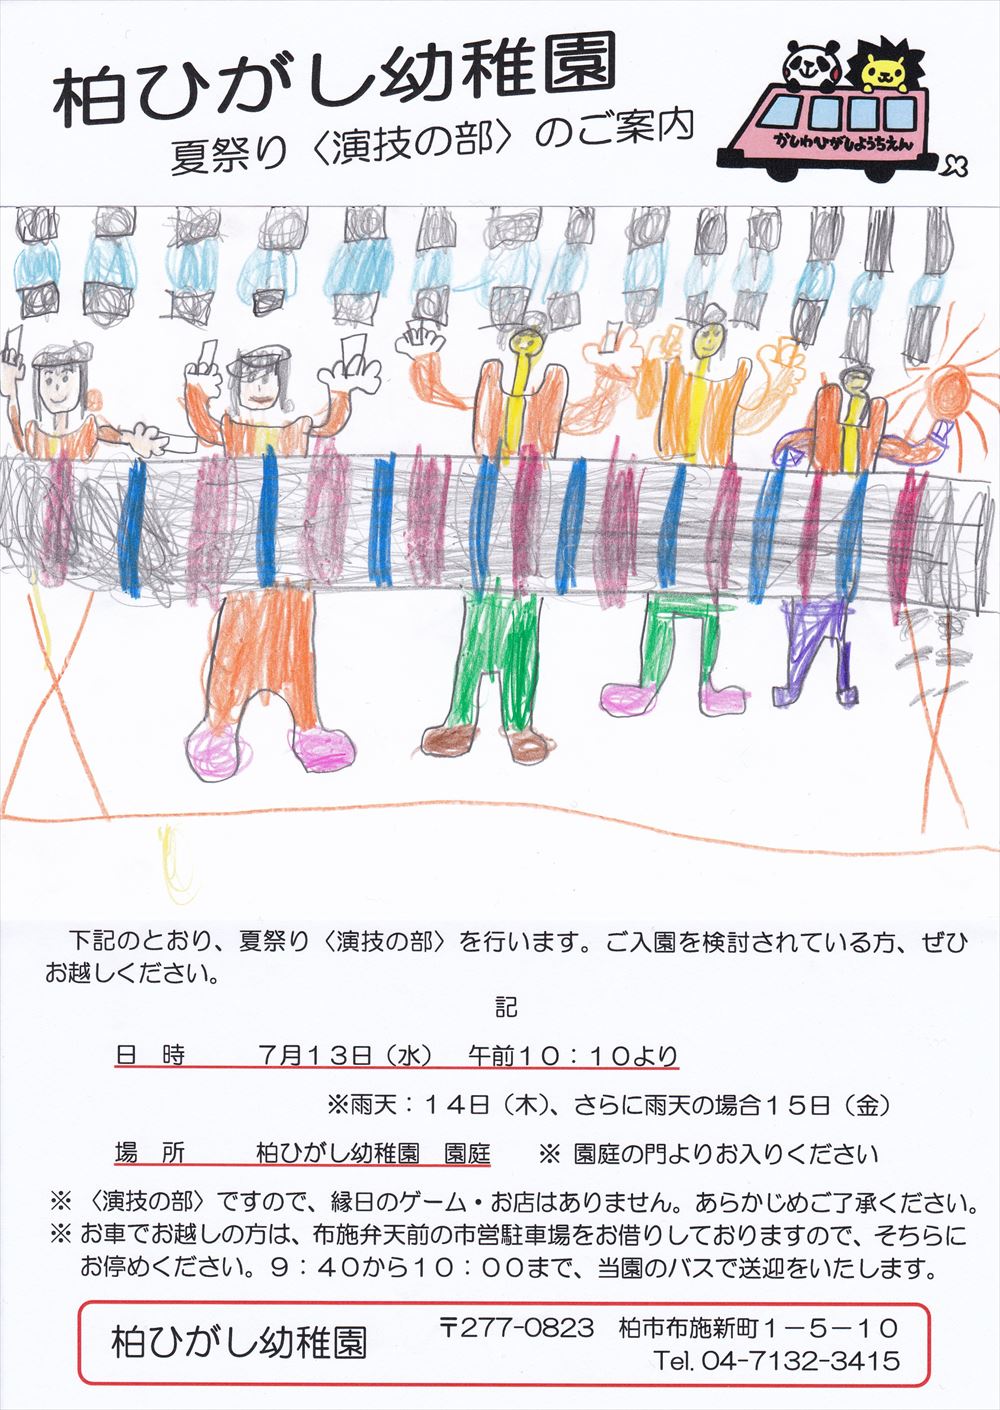 柏ひがし幼稚園
夏祭り〈演技の部〉のご案内
かしわひがしようちえん
下記のとおり、夏祭り〈演技の部〉を行います。ご入園を検討されている方、ぜひ
お越しください。
記
日　時　　　７月１３日（水）　午前１０：１０より
※雨天：１４日（木）、さらに雨天の場合１５日（金）
場　所　　　柏ひがし幼稚園　園庭　　※ 園庭の門よりお入りください
※ 〈演技の部〉ですので、縁日のゲーム・お店はありません。あらかじめご了承ください。
※ お車でお越しの方は、布施弁天前の市営駐車場をお借りしておりますので、そちらに
お停めください。９：４０から１０：００まで、当園のバスで送迎をいたします。
柏ひがし幼稚園
〒277-0823　柏市布施新町１－５－１０
Tel. 04-7132-3415